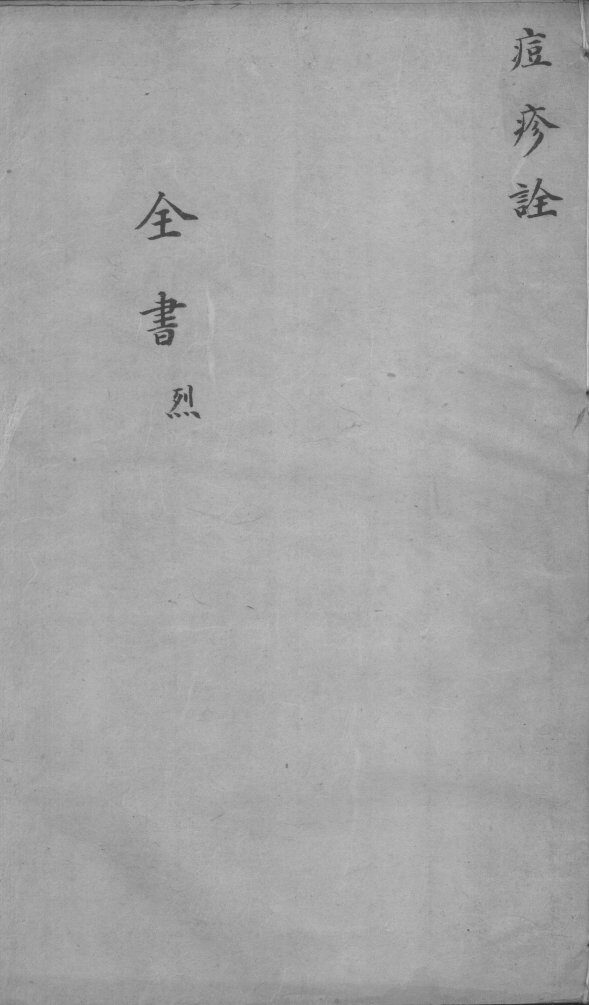 痘疹詮
全書
烈